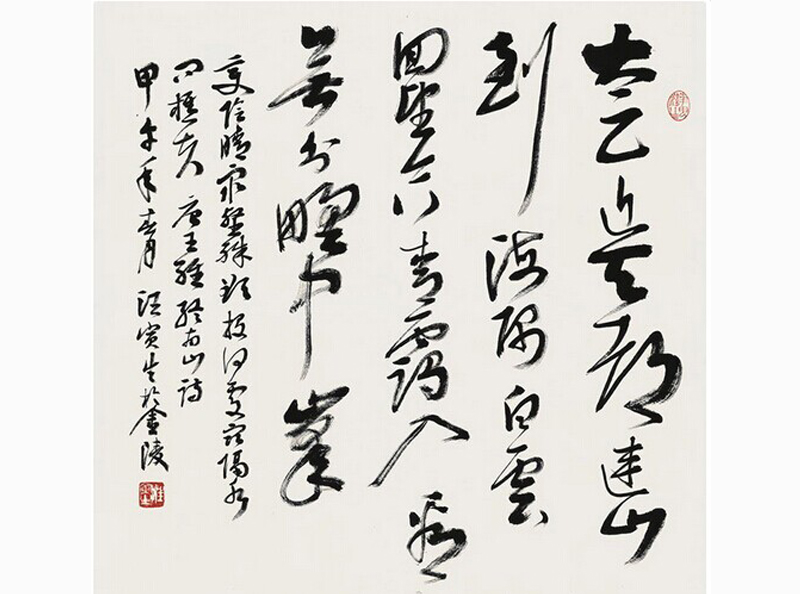 太乙近天都連山
到海隅白雲
回望合青靄入看
無分野中峯
變陰晴眾壑殊欲投何處宿隔水
問樵夫 唐王維終南山詩
甲午年春月汪寅生於金陵